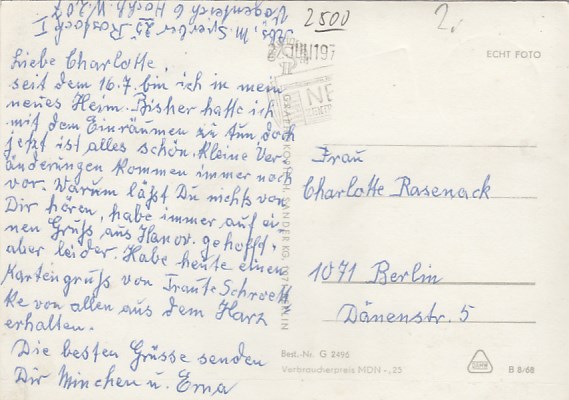 Liebe Charlotte,
seit dem 16.7. bin ich in mein
neues Heim. Bisher hatte ich
mit dem Einräumen zu tun doch
jetzt ist alles schön. Kleine Ver
änderungen kommen immer noch
vor. Warum läßt Du nichts von
Dir hören, habe immer auf ei-
nen Gruß aus Hanov. gehofft,
aber leider. Habe heute einen
Kartengruß von Traute Schroett
ke von allen aus dem Harz
erhalten.
Die besten Grüsse senden
Dir Minchen u. Erna
2500
2.
ECHT FOTO
Frau
Charlotte Rasenack
1071 Berlin
Dänenstr. 5
Best.-Nr. G 2496
Verbraucherpreis MDN -,25
B 8/68